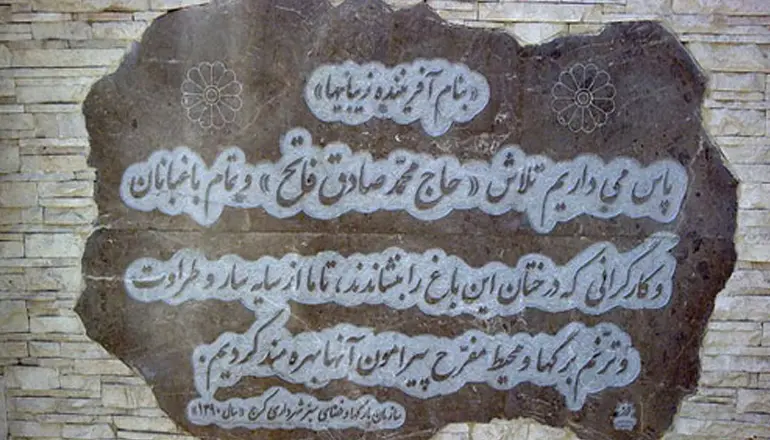 «بنام آفریننده زیبائیها»
پاس می داریم تلاش «حاج محمد صادق فاتح» و تمام باغبانان
و کارگرانی که درختان این باغ را بنشاندند، تا ما از سایه سار و طراوت
و ترنّم برگها و محیط مفرح پیرامون آنها بهره مند گردیم.
سازمان پارکها و فضای سبز شهرداری کرج «سال ۱۳۹۰»